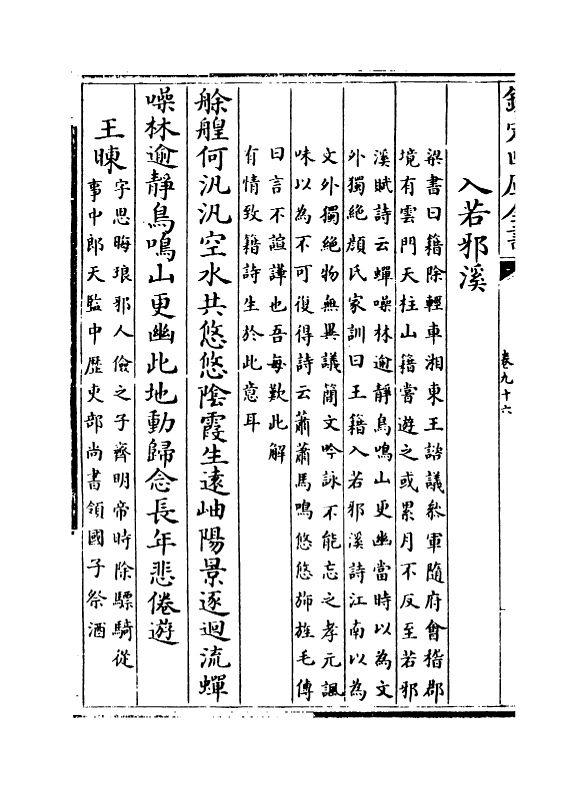 欽定四庫全書
卷九十六
入若邪溪
梁書曰籍除輕車湘東王諮議叅軍隨府會稽郡
境有雲門天柱山籍嘗遊之或累月不反至若邪
溪賦詩云蟬噪林逾靜鳥鳴山更幽當時以為文
外獨絶顔氏家訓曰王籍入若邪溪詩江南以為
文外獨絶物無異議簡文吟詠不能忘之孝元諷
味以為不可復得詩云蕭蕭馬鳴悠悠斾旌毛傳
曰言不諠譁也吾每歎此解
有情致籍詩生於此意耳
艅艎何汎汎空水共悠悠陰霞生遠岫陽景逐迴流蟬
噪林逾靜鳥鳴山更幽此地動歸念長年悲倦遊
王暕
字思晦琅邪人儉之子齊明帝時除驃騎從
事中郎天監中歴吏部尚書領國子祭酒